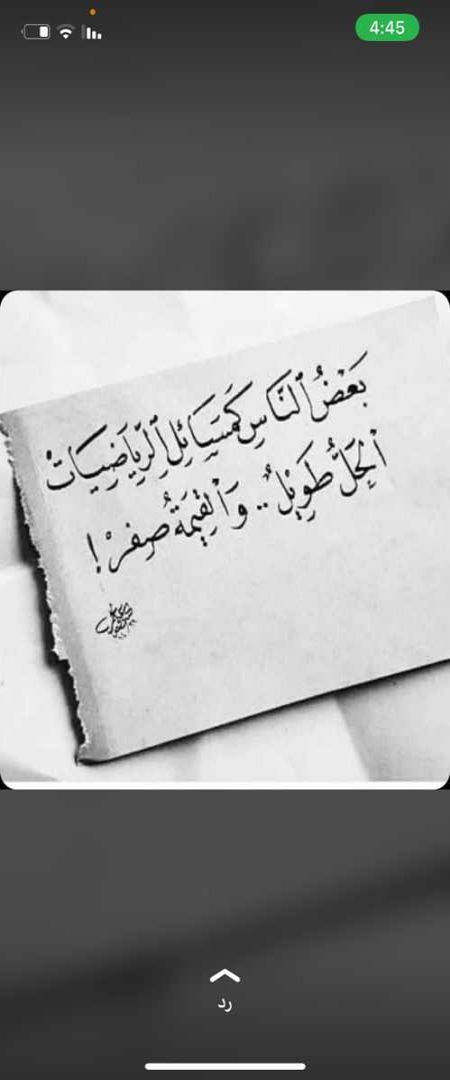 4:45
بَعْضُ ٱلنَّاسِ كَمَسَائِلِ ٱلرِّيَاضِيَاتْ
ٱلْحَلُّ طَوِيْلٌ .. وَٱلْقِيْمَةُ صِفرْ !
رد